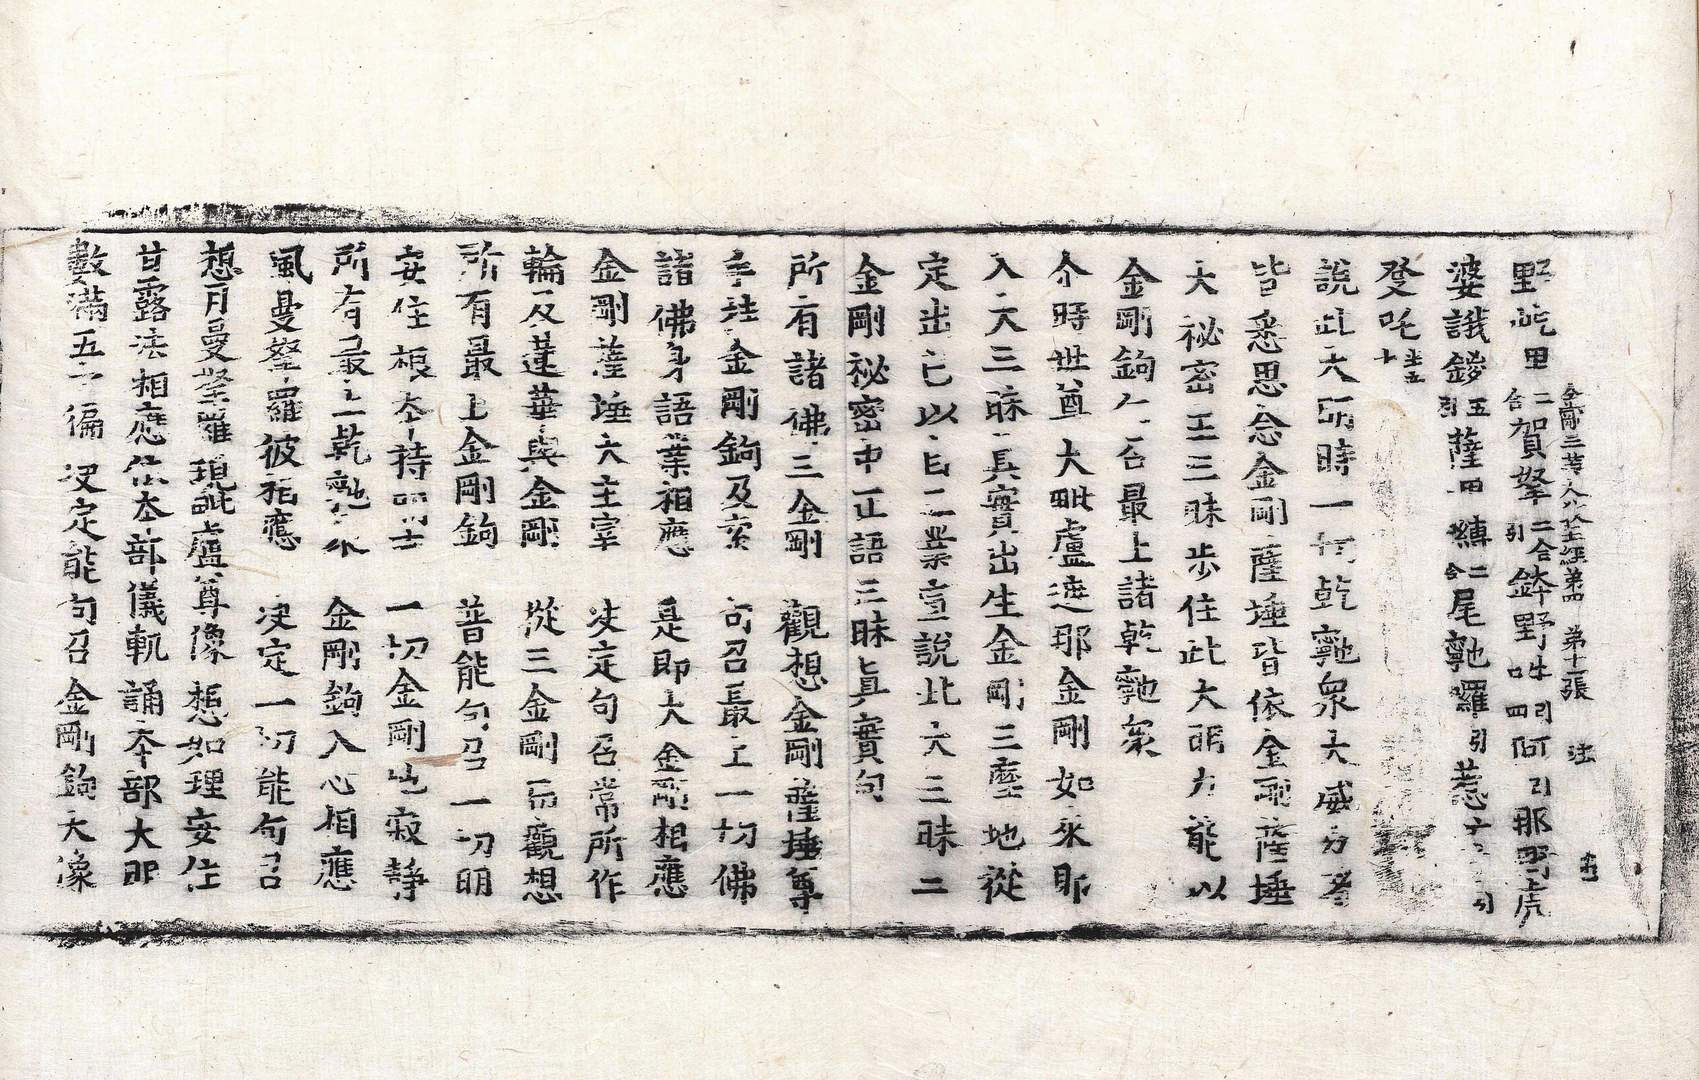 野吃哩二合賀拏二合引鉢野吽引四阿引那野虎
金剛三業大教王經第四 第十一張 法
婆誐鍐五引薩哩縛二合尾䩭囉引惹
登吒半音十
說此大明時一切乾䩭眾大威力者
皆悉思念金剛薩埵皆依金剛薩埵
大祕密王三昧步住此大明力能以
金剛鉤召最上諸乾䩭眾
尒時世尊大毗盧遮那金剛如來即
入大三昧真實出生金剛三摩地從
定出已以自三業宣說此大三昧二
金剛祕密中正語三昧真實句
所有諸佛三金剛 觀想金剛薩埵尊
手持金剛鉤及索 句召最上一切佛
諸佛身語業相應 是即大金剛相應
金剛薩埵大主宰 決定句召常所作
輪及蓮華與金剛 從三金剛而觀想
所有最上金剛鉤 普能句召一切明
安住根本持明士 一切金剛皆寂靜
所有最上乾䩭眾 金剛鉤入心相應
風曼拏羅彼相應 決定一切能句召
想月曼拏羅現毗盧尊像 想如理安住
甘露法相應依本部儀軌 誦本部大明
數滿五六徧 決定能句召 金剛鉤大像